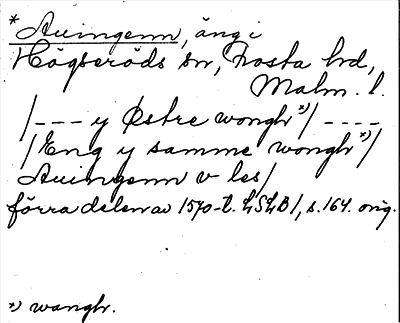 *Auingenn, äng i
Högseröds sn, Frosta hd,
Malm. l.
/--- y Østre wongh*)/ ----
/Eng y samme wongh*)/
Auingenn v les/
förra delen av 1570-t. LSLB/, s. 164. orig.
*) wangh.